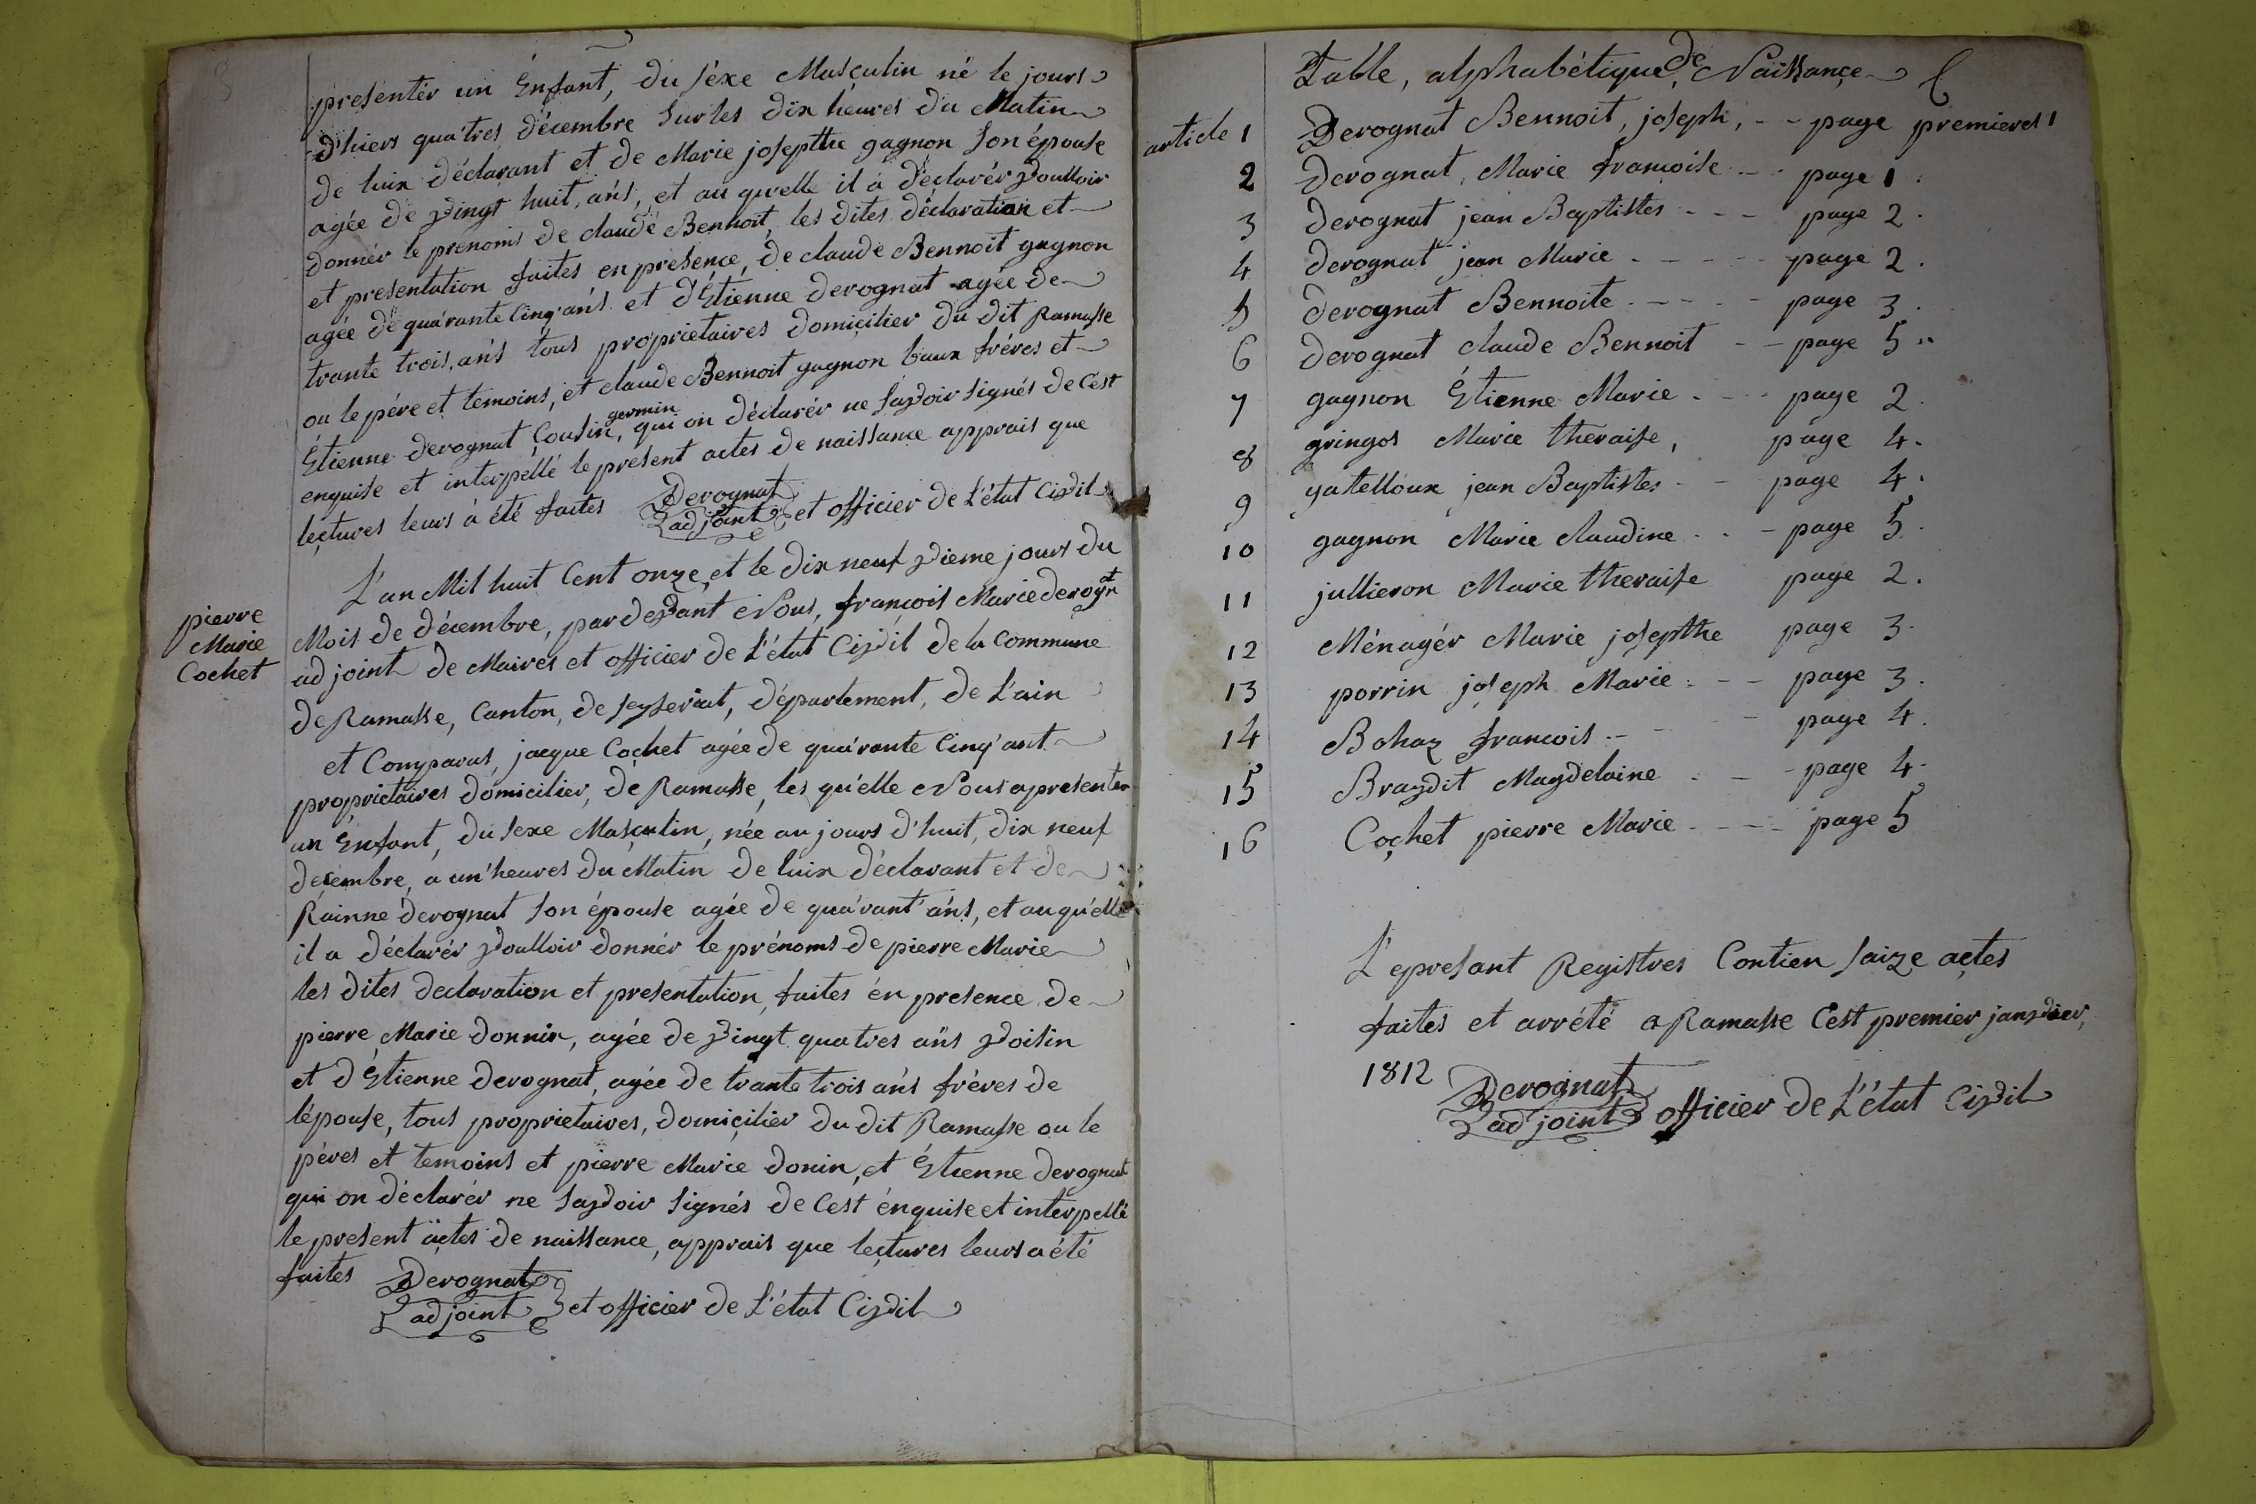 presenter un Énfant, du séxe Masculin né le jours
d'hiers quatres décembre sur les dix heures du Matin
de luix déclarant et de Marie josepthe gagnon son épouse
agée de vingt huit, ans, et au qu'elle il a déclarér voulloir
donnér le prenoms de claude Bennoit, les dites déclaration et
et presentation faites en presence, de claude Bennoit gagnon
agée de quárante cinq'ans et d'Étienne derognat agée de
trante trois, ans tous proprietaires domicilier du dit Ramasse
ou le pére et temoins, et claude Bennoit gagnon baux fréres et
Étienne derognat Cousin, germin qui on déclarér ne savoir signés de Cest
enquise et interpéllé le présent actes de naissance apprais que
lectures leurs à été faites Derognat
adjoint et officier de L'état Civil
pierre
Marie
Cochet
L'an Mil huit Cent onze, et le dix neuf vieme jours du
Mois de décembre, pardevant Nous, françois Marie derognat
adjoint de Maires et officier de L'état Civil de la Commune
de Ramasse, Canton, de seyseriat, département, de L'ain
et Comparus, jacque Cochet agée de quárante Cinq'ant
proprietaires domicilier, de Ramasse, les qu'elle Nous a presenter
un Énfant, du sexe Masculin, née au jours d'huit, dix neuf
decembre, a un'heures du Matin de luix déclarant et de
Rainne derognat son épouse agée de quá'rant'ans, et au qu'elle
il a déclarér voulloir donnér le prénoms de pierre Marie
les dites declaration et presentation, faites én presence de
pierre Marie donnin, agée de vingt quatres ans voisin
et d'Étienne derognat, agée de trante trois ans fréres de
lépouse, tous proprietaires, domicilier du dit Ramasse ou le
péres et temoins et pierre Marie donin, et Étienne derognat
qui on déclarér ne savoir signés de Cest énquise et interpellé
le present actes de naissance, apprais que lectures leurs a été
faites Derognat
adjoint et officier de L'état Civil
Table, alphabétique, de Naissance
article 1 Derognat Bennoit, joseph, - - page premieres 1
2 derognat, Marie francoise - - page 1.
3 derognat jean Baptistes - - - page 2.
4 derognat jean Marie - - - - - page 2.
5 derognat Bennoite - - - - page 3.
6 derognat claude Bennoit - - page 5..
7 gagnon Étienne Marie - - - page 2.
8 gringos Marie theraise, page 4.
9 gatelloux jean Baptistes - - page 4.
10 gagnon Marie claudine - - - page 5.
11 jullieron Marie theraise page 2.
12 Ménagér Marie josepthe page 3.
13 porrin joseph Marie - - - page 3.
14 Bohaz francois - - - page 4.
15 Bravdit Magdelaine - - - page 4.
16 Cochet pierre Marie - - - - page 5
L'epresant Registres Contien saize actes
faites et arrété a Ramasse Cest premier janvier,
1812 Derognat
adjoint officier de L'état Civil